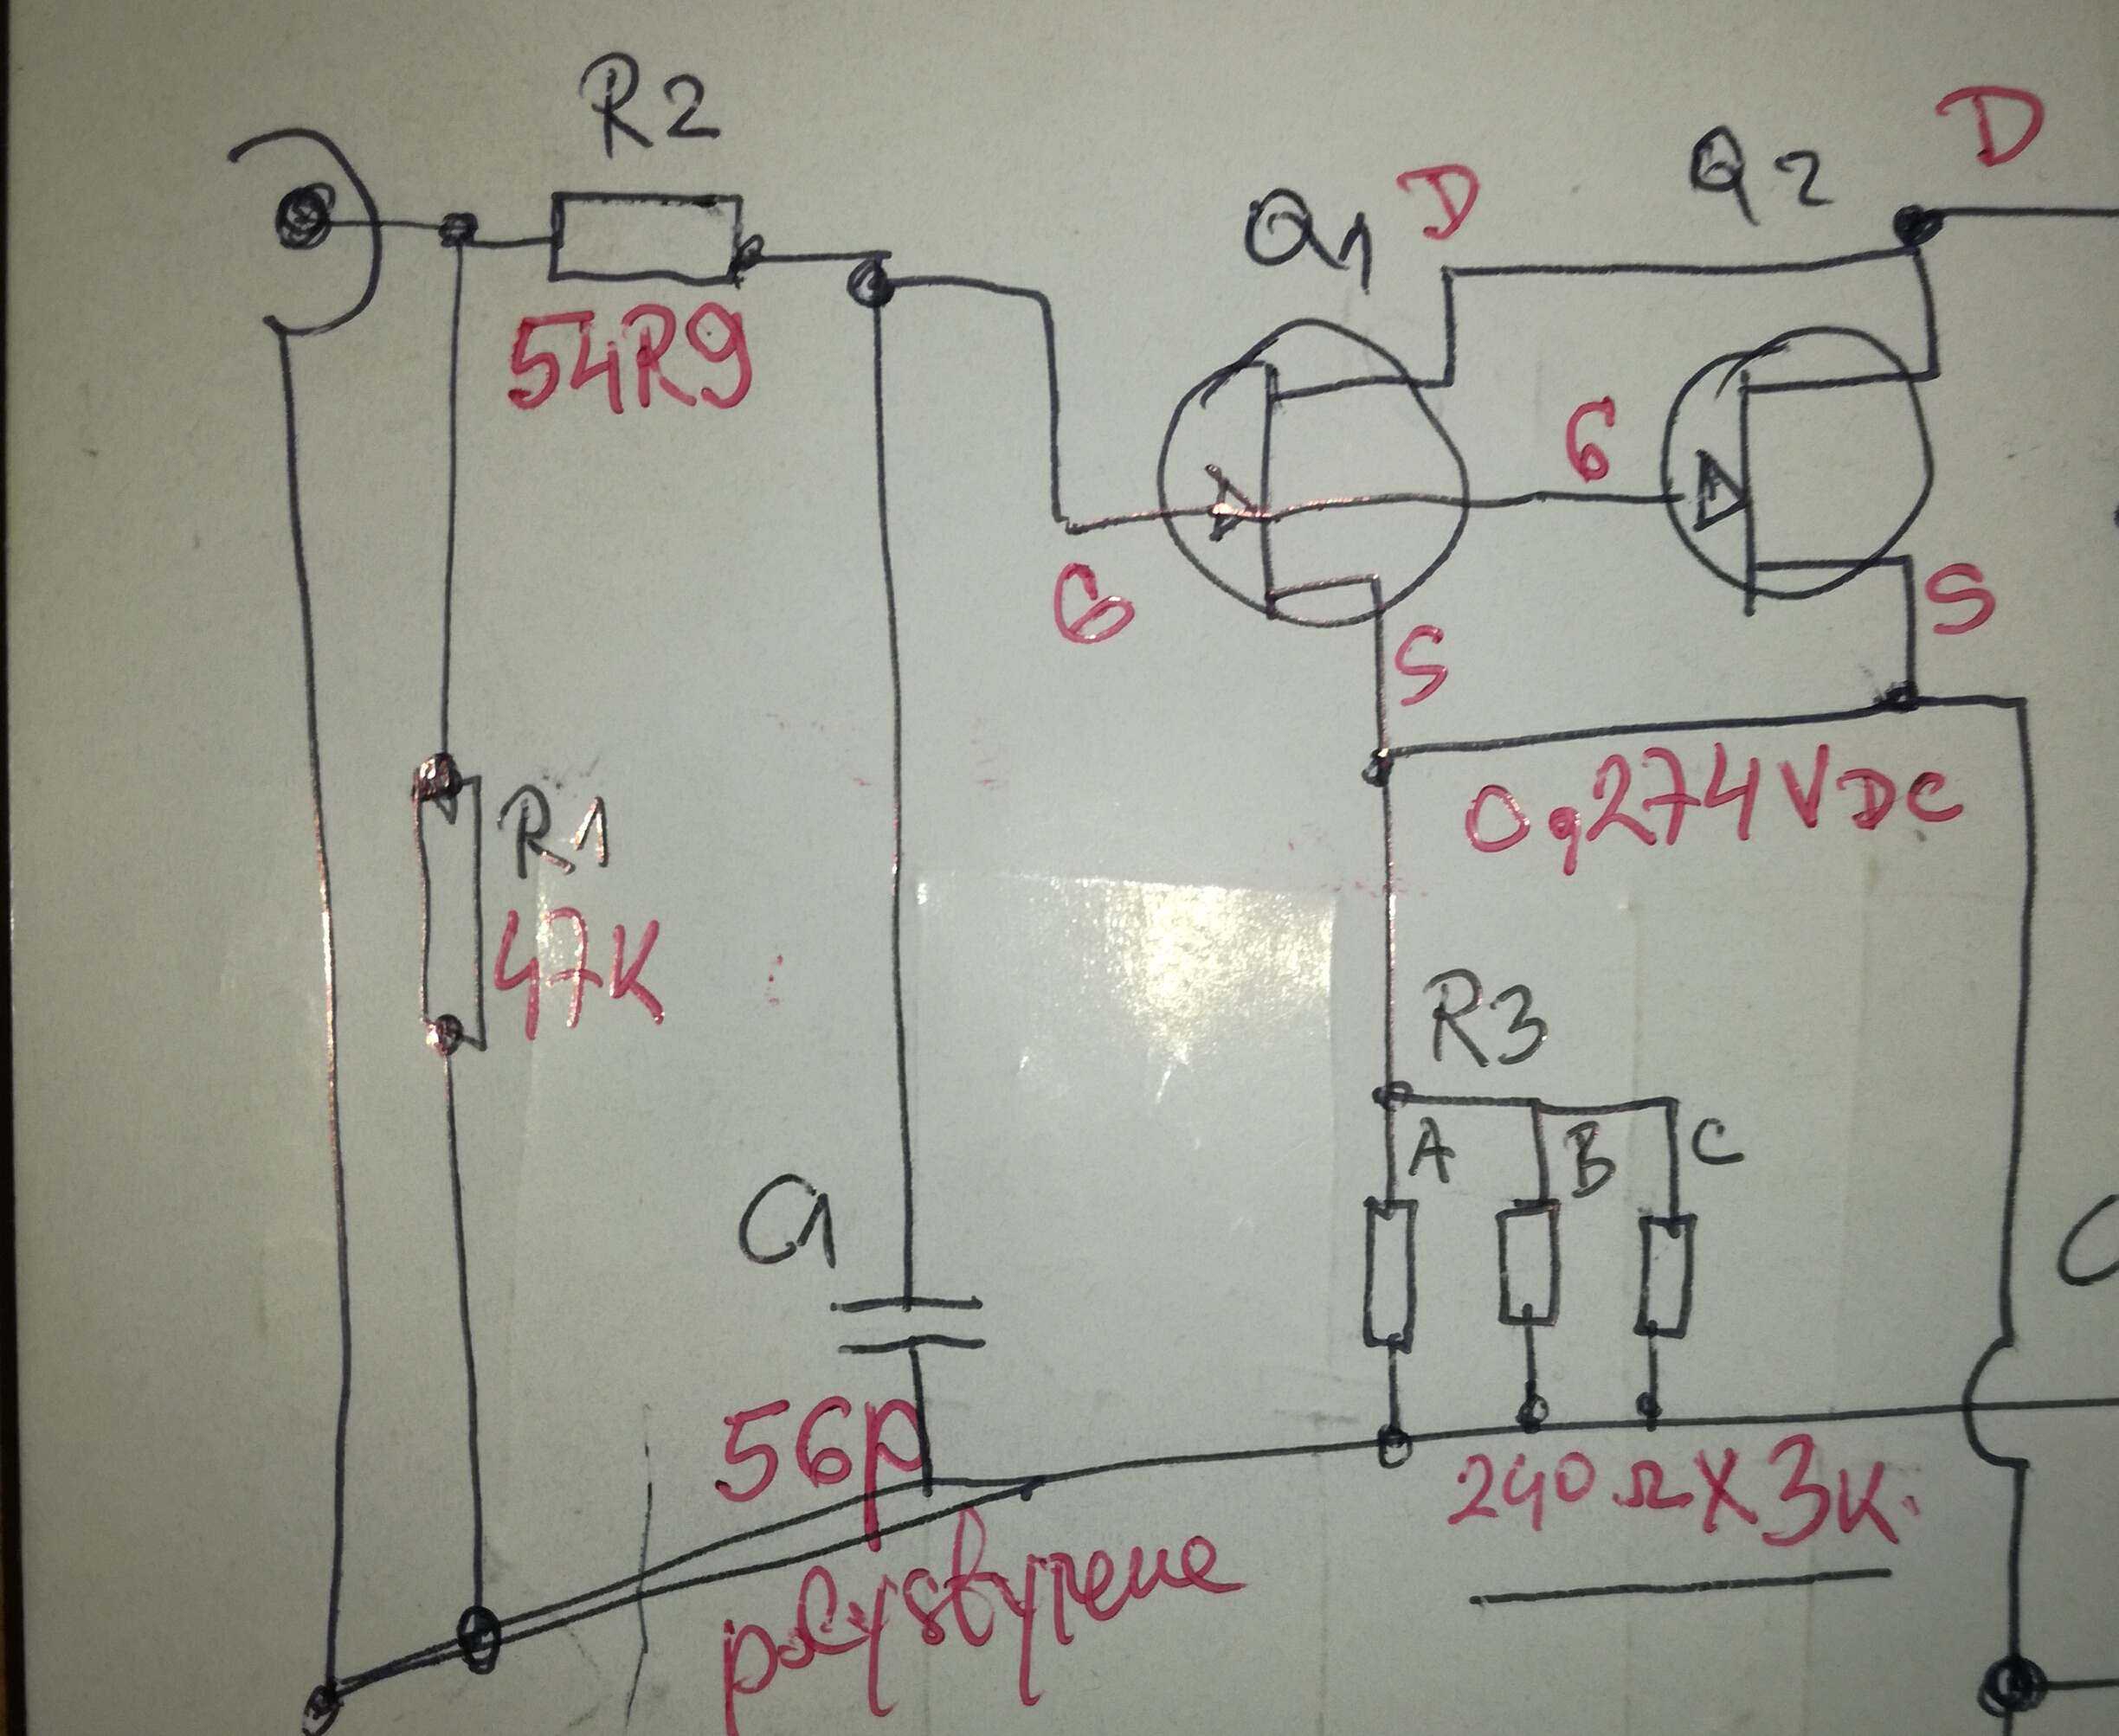 R2
54R9
Q1
D
Q2
D
G
G
S
S
0,274VDC
R1
47K
R3
A
B
C
C1
56p
polystyrene
240Ω X 3K.